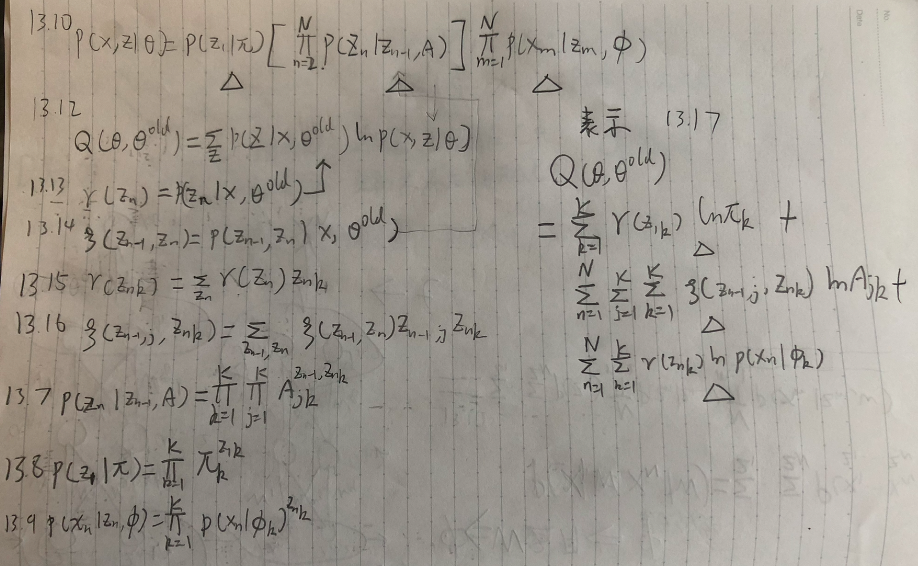 13.10 p(x,z|θ)= p(z₁|π) [ ∏_{n=2}^{N} p(zₙ|zₙ₋₁,A) ] ∏_{m=1}^{N} p(xₘ|zₘ,φ)
△ △ △
13.12
Q(θ,θ^old) = ∑_z p(z|x,θ^old) ln p(x,z|θ)
13.13 γ(zₙ) = p(zₙ|x,θ^old)
13.14 ξ(zₙ₋₁,zₙ) = p(zₙ₋₁,zₙ|x,θ^old)
13.15 γ(zₙₖ) = ∑_{zₙ} γ(zₙ) zₙₖ
13.16 ξ(zₙ₋₁,j, zₙₖ) = ∑_{zₙ₋₁,zₙ} ξ(zₙ₋₁,zₙ) zₙ₋₁,j zₙₖ
13.7 p(zₙ|zₙ₋₁,A) = ∏_{k=1}^{K} ∏_{j=1}^{K} A_{jk}^{zₙ₋₁,zₙₖ}
13.8 p(z₁|π) = ∏_{k=1}^{K} πₖ^{z₁ₖ}
13.9 p(xₙ|zₙ,φ) = ∏_{k=1}^{K} p(xₙ|φₖ)^{zₙₖ}
表示 13.17
Q(θ,θ^old)
= ∑_{k=1}^{K} γ(z₁ₖ) ln πₖ +
△
∑_{n=1}^{N} ∑_{j=1}^{K} ∑_{k=1}^{K} ξ(zₙ₋₁,j, zₙₖ) ln A_{jk} +
△
∑_{n=1}^{N} ∑_{k=1}^{K} γ(zₙₖ) ln p(xₙ|φₖ)
△
No.
Date